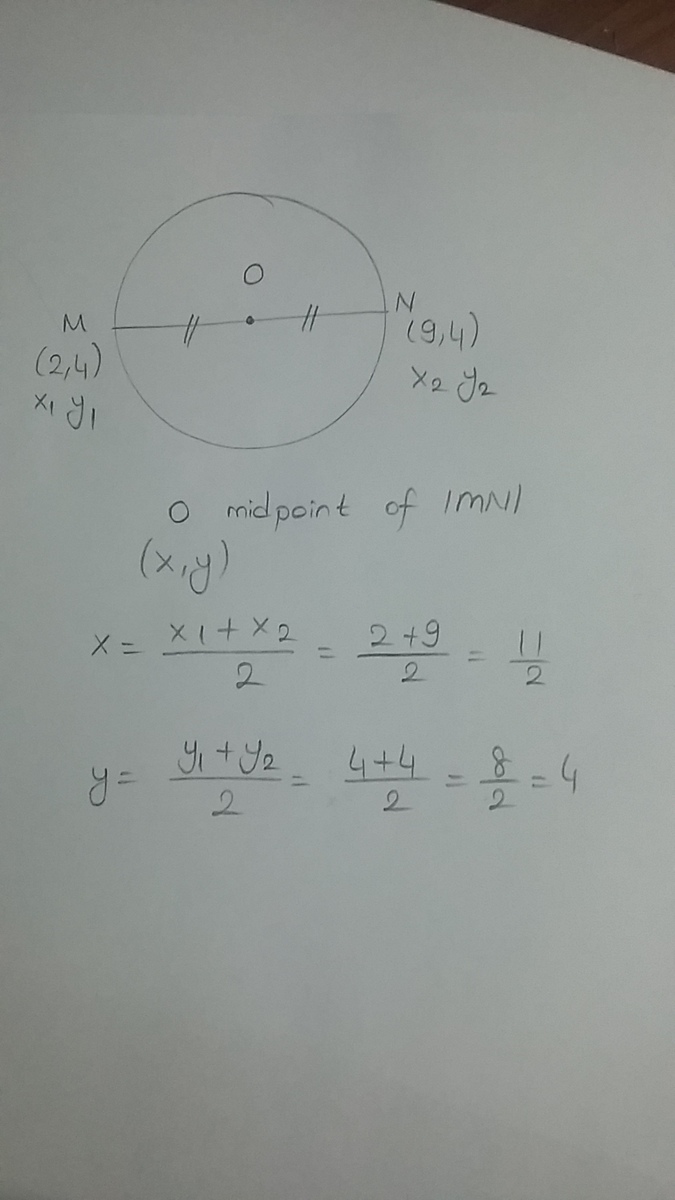 O
M
N
(2,4)
(9,4)
x1 y1
x2 y2
O midpoint of |MN|
(x,y)
x = x1 + x2 / 2 = 2+9 / 2 = 11 / 2
y = y1 + y2 / 2 = 4+4 / 2 = 8 / 2 = 4